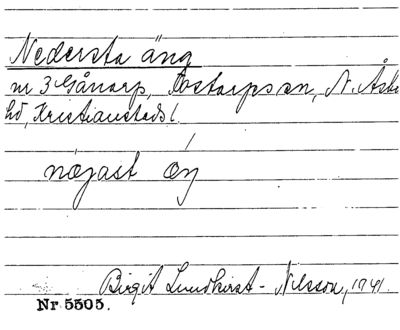 Nedersta äng
nr 3 Gånarp, Tostarps sn, N. Åsbo
hd, Kristianstads l.
nøjast
Birgit Lundkvist-Nilsson, 1941.
Nr 5505.